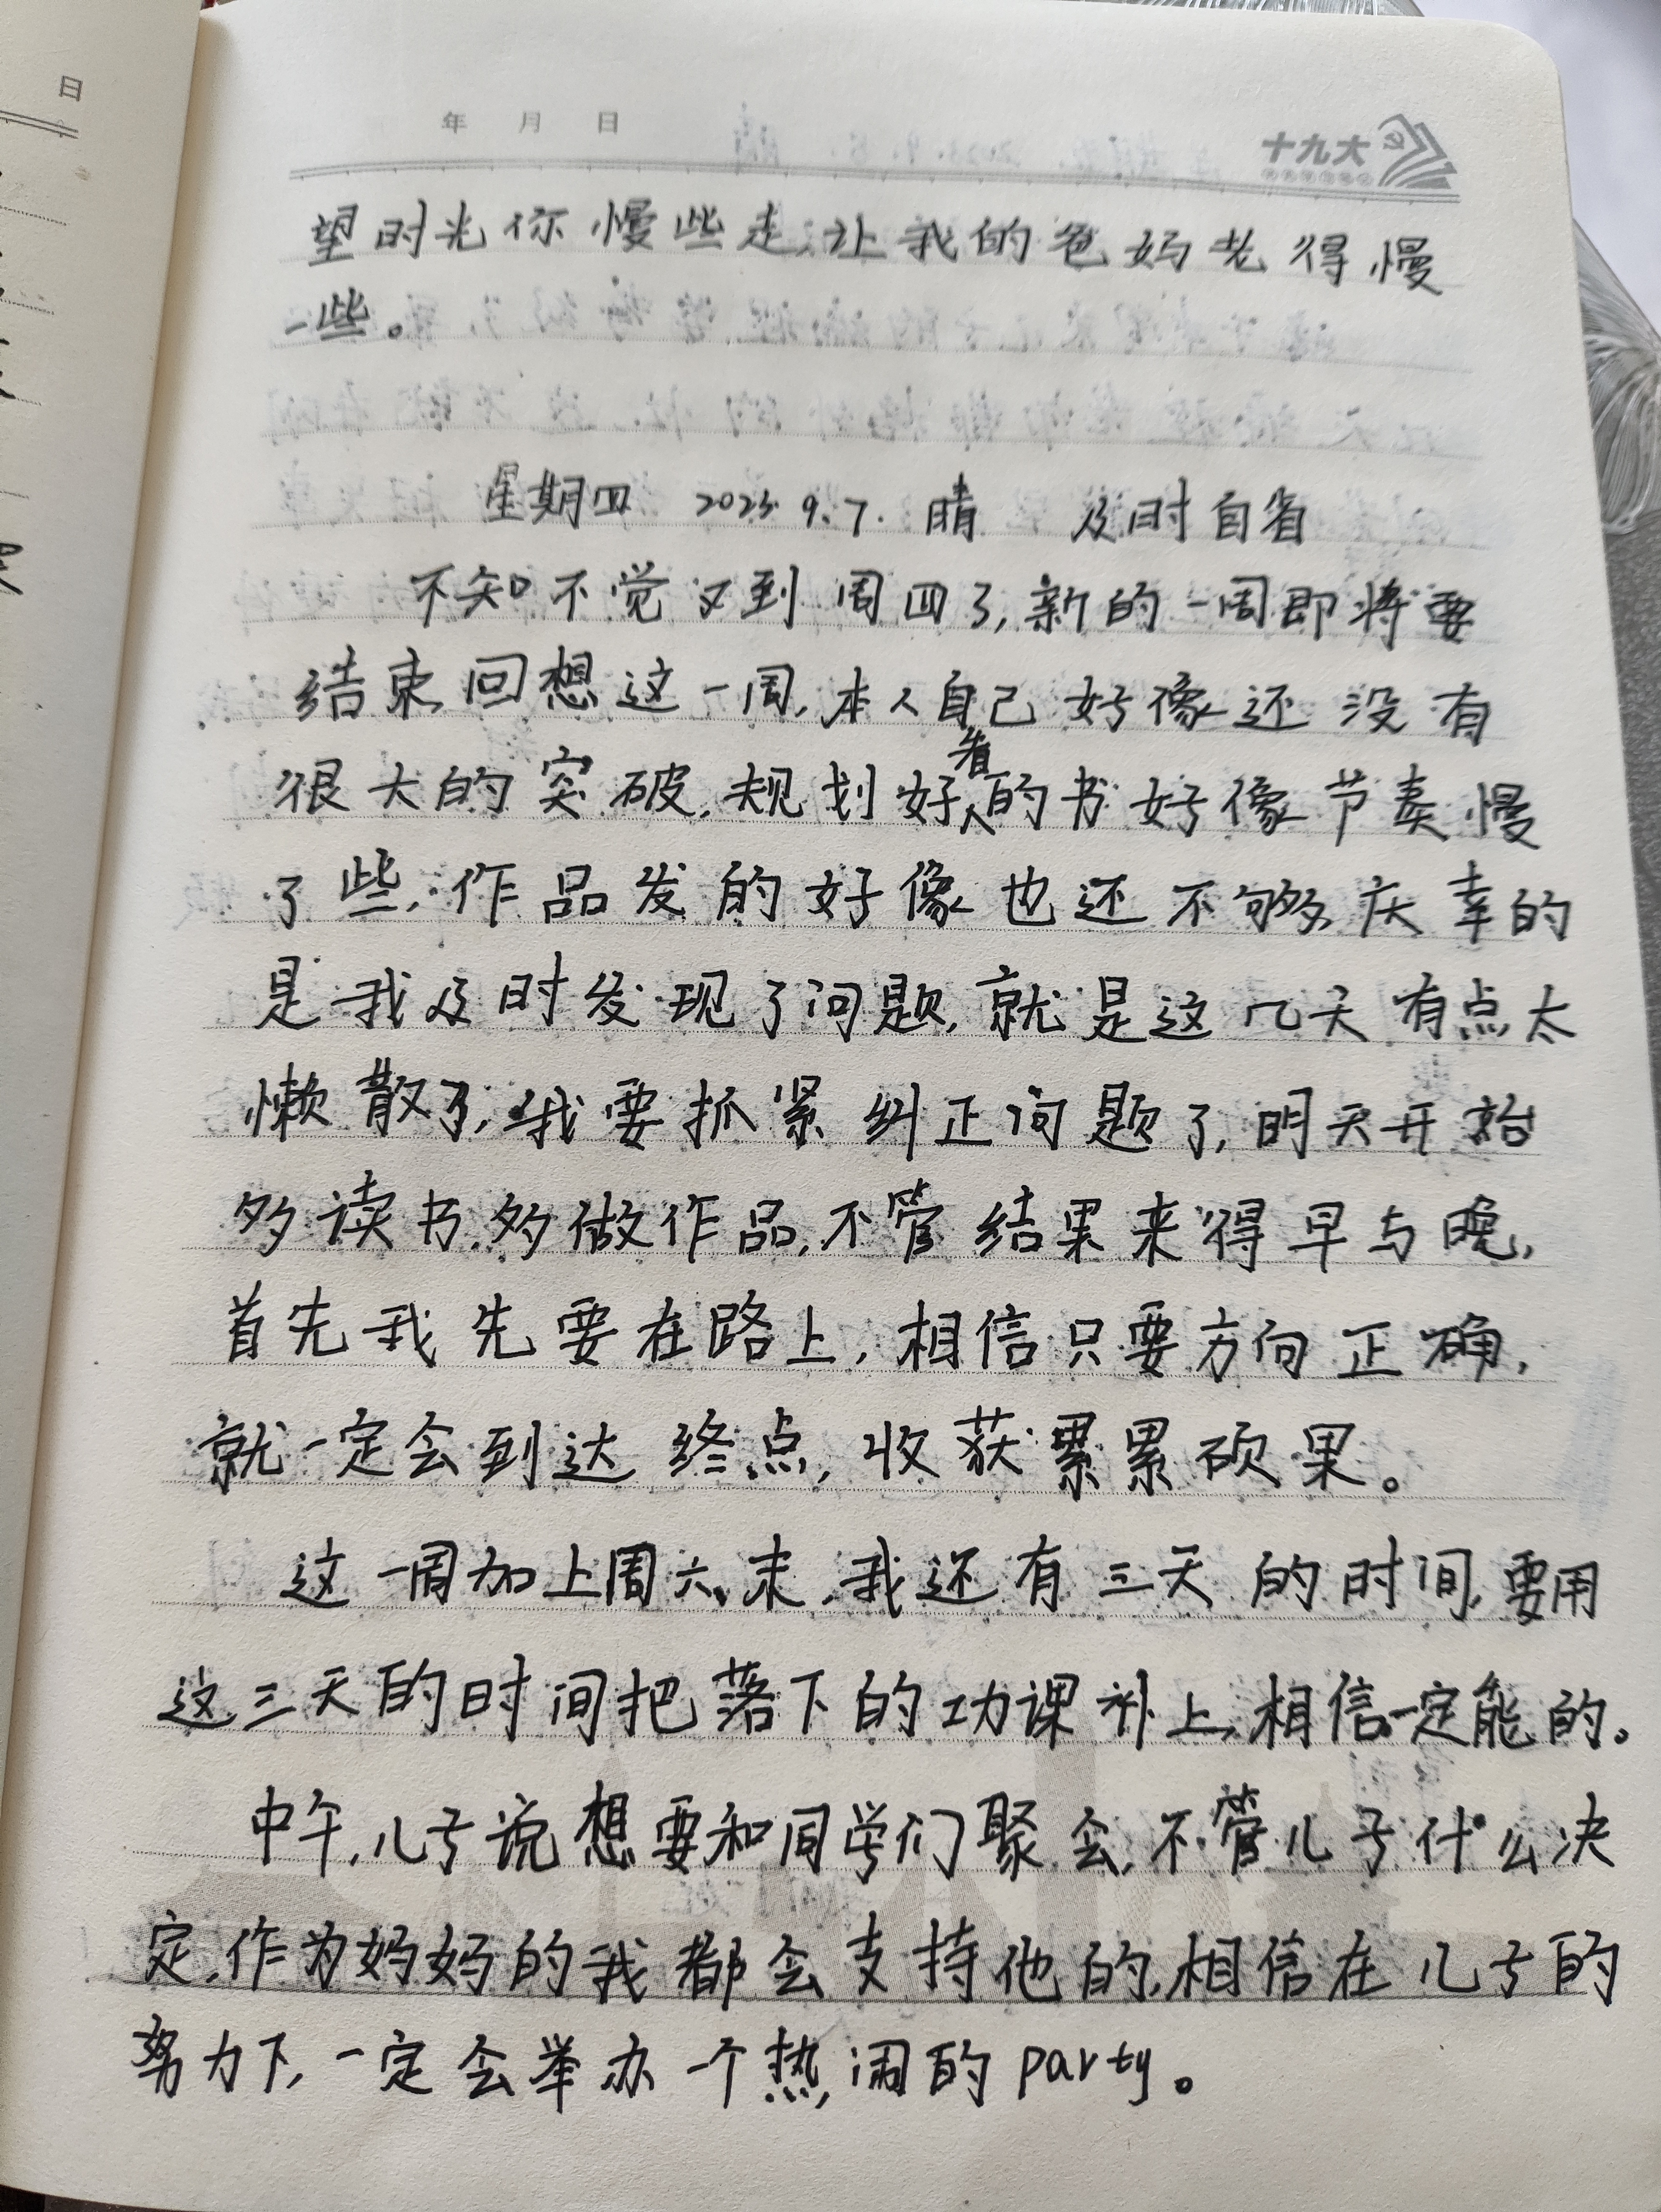 日
年 月 日
十九大
望时光你慢些走,让我的爸妈老得慢
一些。
星期四 2023.9.7. 晴 及时自省
不知不觉又到周四了,新的一周即将要
结束,回想这一周,本人自己好像还没有
很大的突破,规划好看的书好像节奏慢
了些,作品发的好像也还不够,庆幸的
是我及时发现了问题,就是这几天有点太
懒散了,我要抓紧纠正问题了,明天开始
多读书,多做作品,不管结果来得早与晚,
首先我先要在路上,相信只要方向正确,
就一定会到达终点,收获累累硕果。
这一周加上周六、末,我还有三天的时间,要用
这三天的时间把落下的功课补上,相信一定能的。
中午,儿子说想要和同学们聚会,不管儿子什么决
定,作为妈妈的我都会支持他的,相信在儿子的
努力下,一定会举办一个热闹的party。